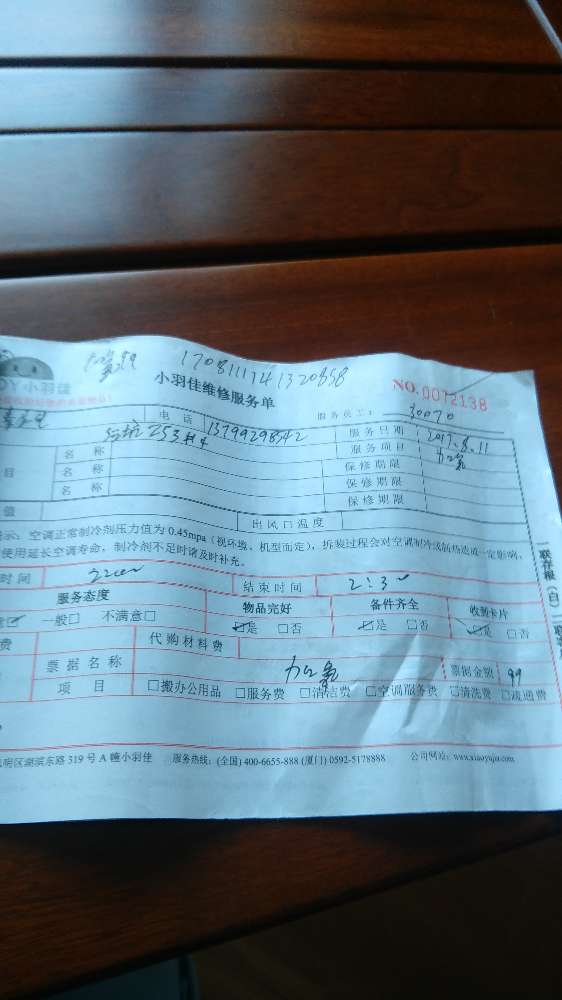 加氟99 1708111141320858
OY小羽佳
小羽佳维修服务单 NO.0072138
服务员工: 30070
电话 13799298542 服务日期 2017.8.11
名称 253 服务项目 加氟
目 名称 保修期限
名称 保修期限
保修期限
值 出风口温度
示:空调正常制冷剂压力值为0.45mpa(视环境、机型而定),拆装过程会对空调制冷或制热造成一定影响,
使用延长空调寿命,制冷剂不足时请及时补充。
时间 结束时间 2:3
服务态度 物品完好 备件齐全 收到卡片
一般□ 不满意□ ☑是 □否 ☑是 □否 ☑是 □否
费 代购材料费
票据名称 加氟 票据金额 99
项目 □搬办公用品 □服务费 □清洁费 □空调服务费 □清洗费 □疏通费
明区湖滨东路319号A幢小羽佳 服务热线:(全国)400-6655-888 (厦门)0592-5178888 公司网站:www.xiaoyujia.com
一联存根(白)